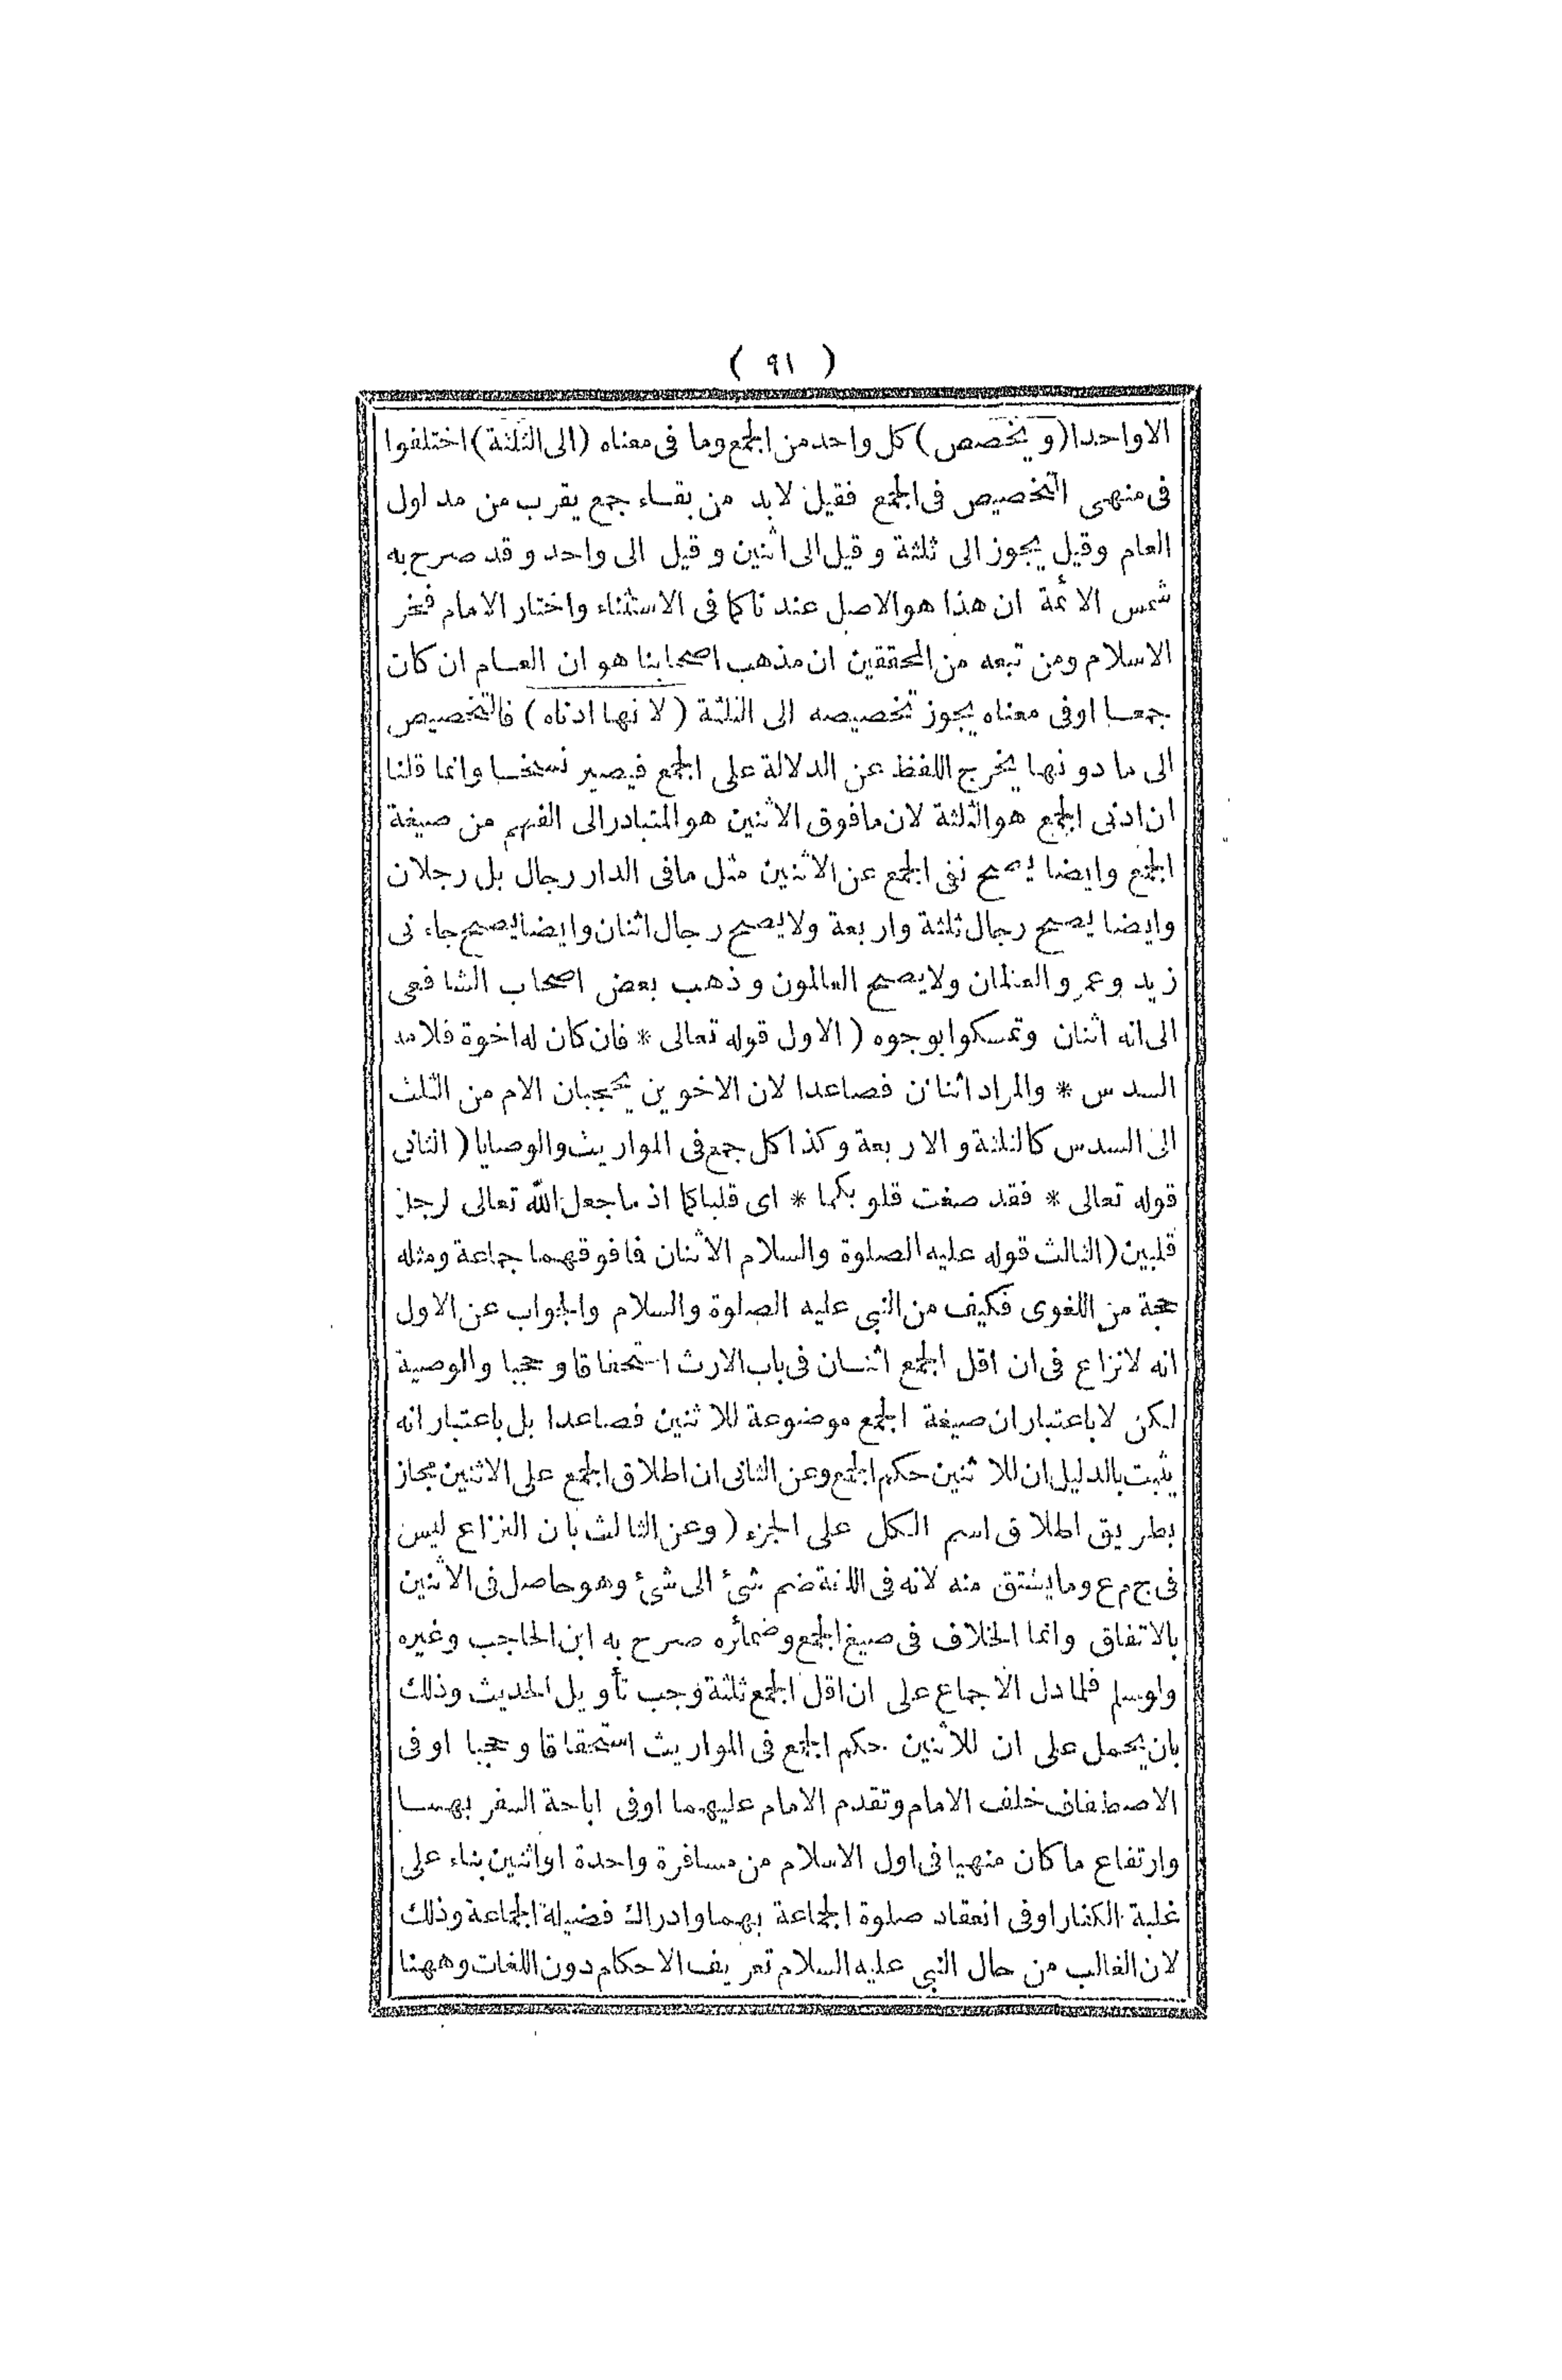 ( ٩١ )
الا واحدا ( ويخصص ) كل واحد من الجمع وما فى معناه ( الى الثلثة ) اختلفوا
فى منتهى التخصيص فى الجمع فقيل لابد من بقاء جمع يقرب من مدلول
العام وقيل يجوز الى ثلثة وقيل الى اثنين وقيل الى واحد وقد صرح به
شمس الائمة ان هذا هو الاصل عندنا كما فى الاستثناء واختار الامام فخر
الاسلام ومن تبعه من المحققين ان مذهب اصحابنا هو ان العام ان كان
جمعا او فى معناه يجوز تخصيصه الى الثلثة ( لانها ادناه ) فالتخصيص
الى ما دونها يخرج اللفظ عن الدلالة على الجمع فيصير نسخا وانما قلنا
ان ادنى الجمع هو الثلثة لان ما فوق الاثنين هو المتبادر الى الفهم من صيغة
الجمع وايضا يصح نفى الجمع عن الاثنين مثل ما فى الدار رجال بل رجلان
وايضا يصح رجال ثلثة واربعة ولا يصح رجال اثنان وايضا يصح جاءنى
زيد وعمرو العالمان ولا يصح العالمون وذهب بعض اصحاب الشافعى
الى انه اثنان وتمسكوا بوجوه ( الاول قوله تعالى * فان كان له اخوة فلامه
السدس * والمراد اثنان فصاعدا لان الاخوين يحجبان الام من الثلث
الى السدس كالثلثة والاربعة وكذا كل جمع فى المواريث والوصايا ( الثانى
قوله تعالى * فقد صغت قلوبكما * اى قلباكما اذ ما جعل الله تعالى لرجل
قلبين ( الثالث قوله عليه الصلوة والسلام الاثنان فما فوقهما جماعة ومثله
حجة من اللغوى فكيف من النبى عليه الصلوة والسلام والجواب عن الاول
انه لا نزاع فى ان اقل الجمع اثنان فى باب الارث استحقاقا وحجبا والوصية
لكن لا باعتبار ان صيغة الجمع موضوعة للاثنين فصاعدا بل باعتبار انه
يثبت بالدليل ان للاثنين حكم الجمع وعن الثانى ان اطلاق الجمع على الاثنين مجاز
بطريق اطلاق اسم الكل على الجزء ( وعن الثالث بان النزاع ليس
فى ج م ع وما يشتق منه لانه فى اللغة ضم شئ الى شئ وهو حاصل فى الاثنين
بالاتفاق وانما الخلاف فى صيغ الجمع وضمائره صرح به ابن الحاجب وغيره
ولو سلم فلما دل الاجماع على ان اقل الجمع ثلثة وجب تأويل الحديث وذلك
بان يحمل على ان للاثنين حكم الجمع فى المواريث استحقاقا وحجبا او فى
الاصطفاف خلف الامام وتقدم الامام عليهما او فى اباحة السفر بهما
وارتفاع ما كان منهيا فى اول الاسلام من مسافرة واحدة او اثنين بناء على
غلبة الكفار او فى انعقاد صلوة الجماعة بهما وادراك فضيلة الجماعة وذلك
لان الغالب من حال النبى عليه السلام تعريف الاحكام دون اللغات وههنا